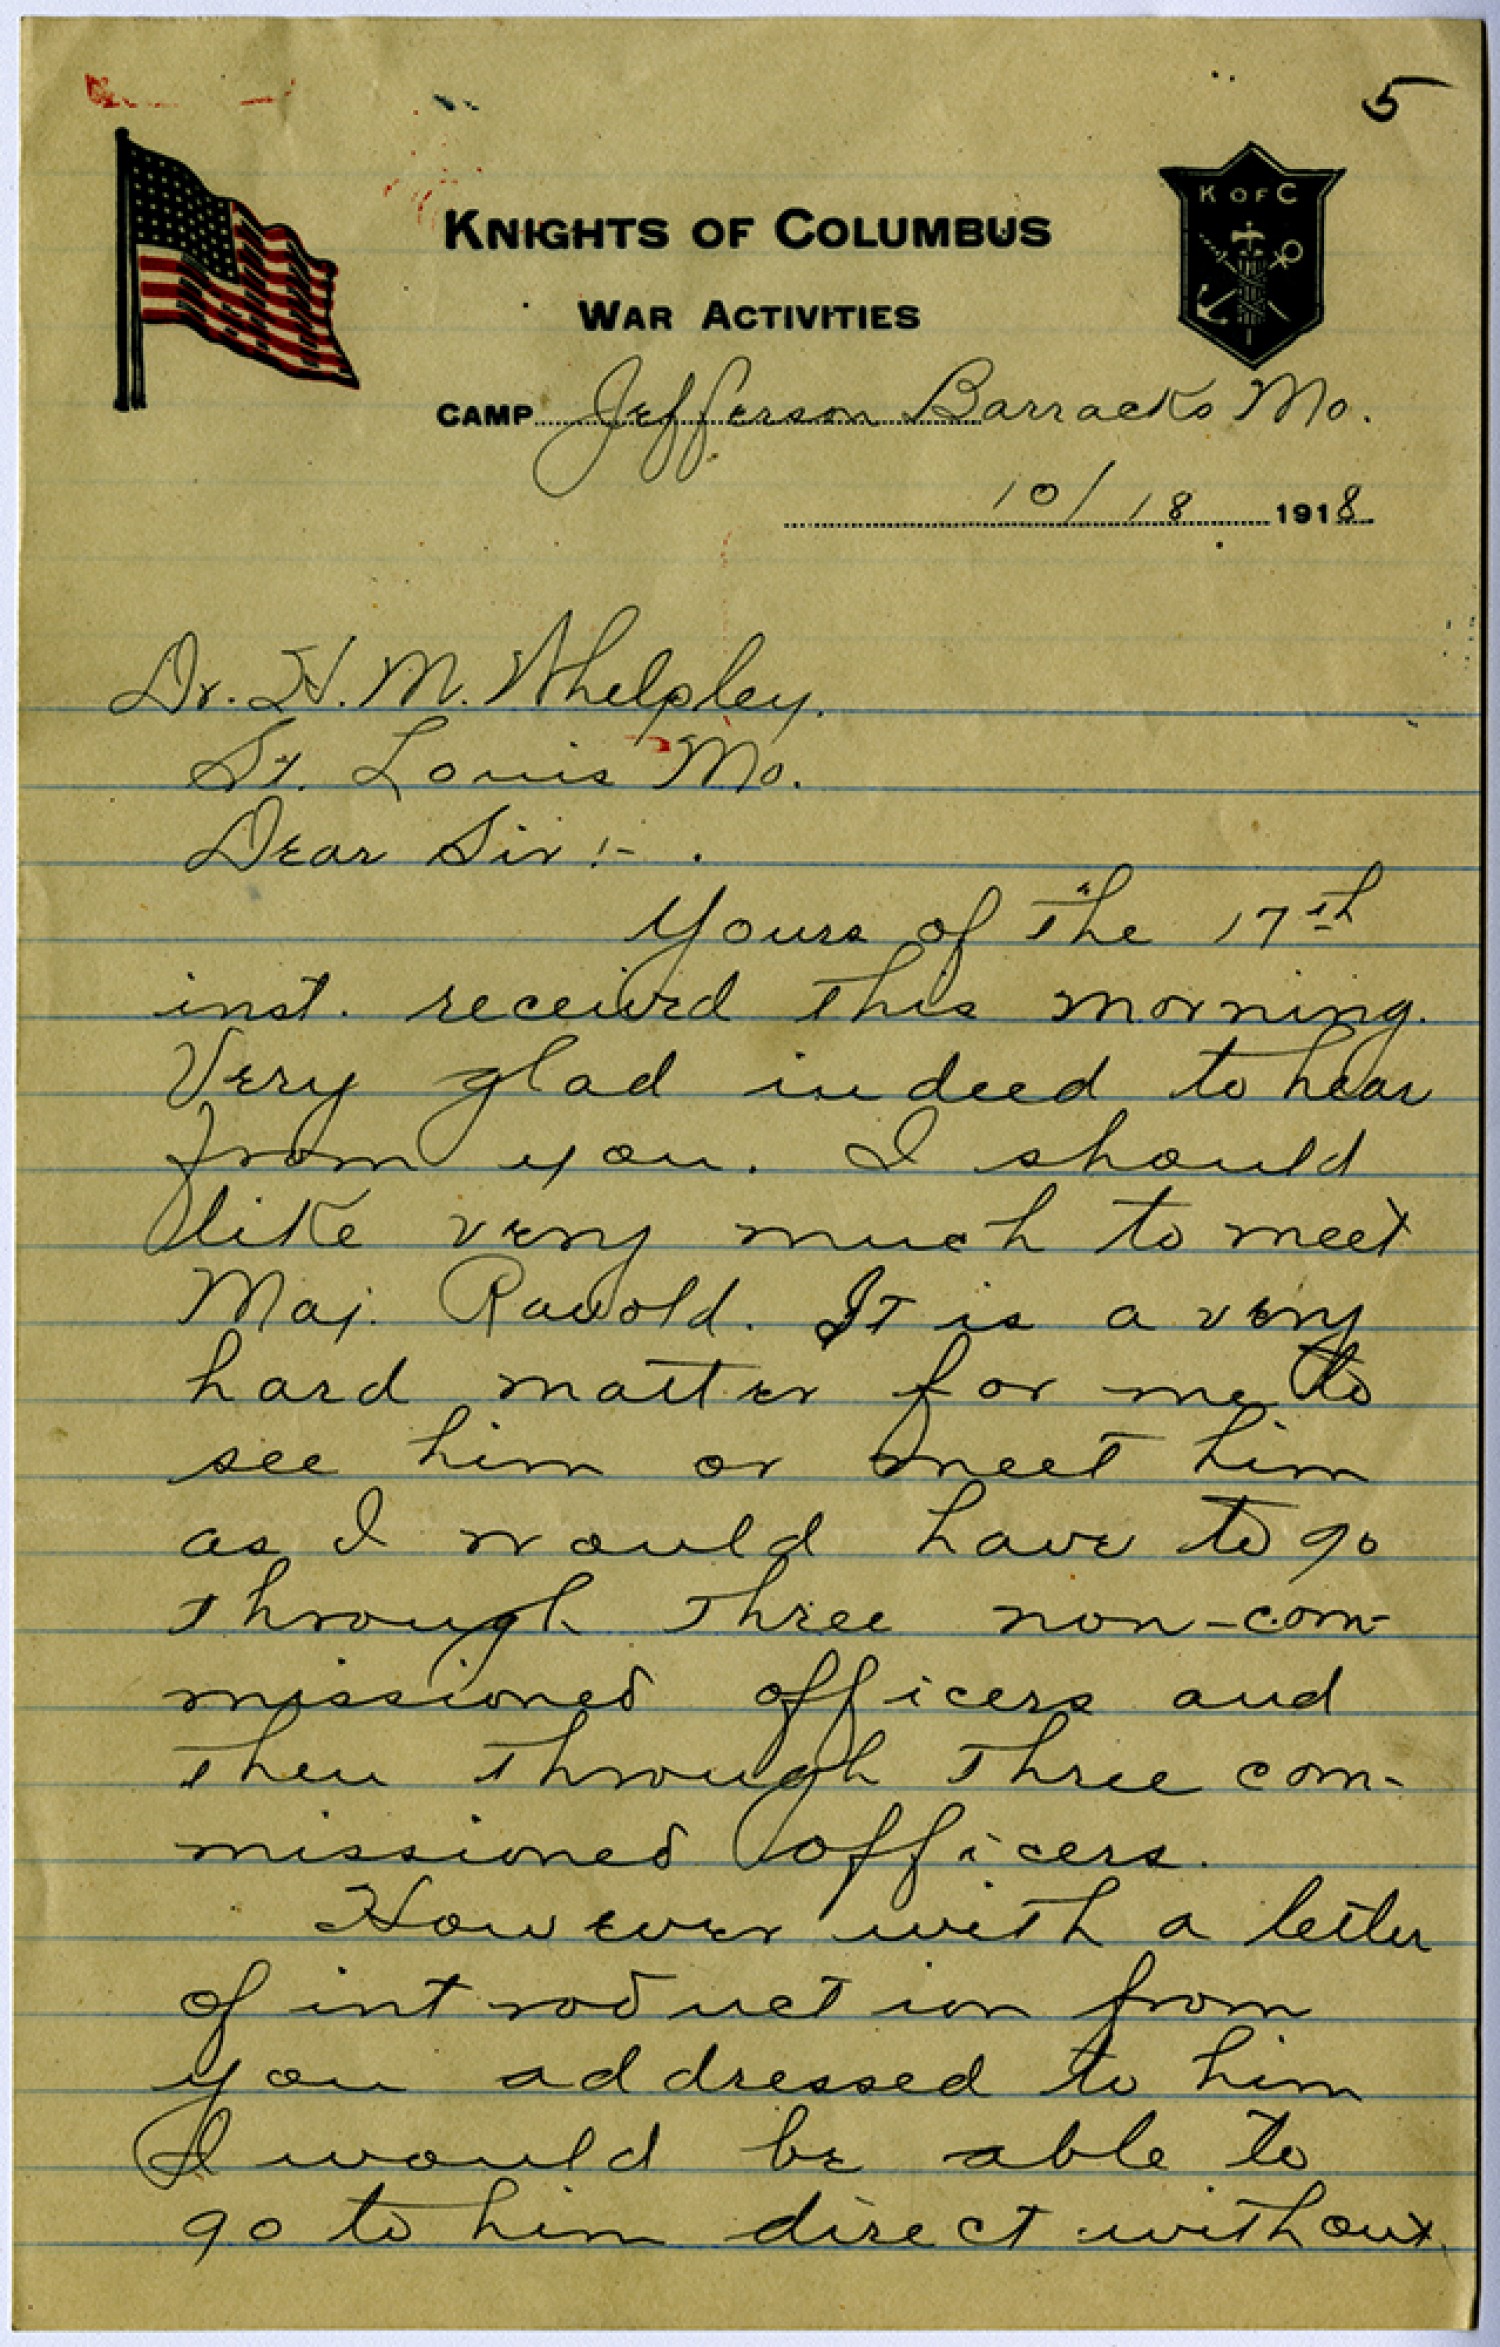 5
K OF C
KNIGHTS OF COLUMBUS
WAR ACTIVITIES
CAMP Jefferson Barracks Mo.
10/18 1918
Dr. H. M. Whelpley.
St. Louis Mo.
Dear Sir:-
Yours of the 17th
inst. received this morning.
Very glad indeed to hear
from you. I should
like very much to meet
Maj. Ravold. It is a very
hard matter for me to
see him or meet him
as I would have to go
through three non-com-
missioned officers and
then through three com-
missioned officers.
However with a letter
of introduction from
you addressed to him
I would be able to
go to him direct without